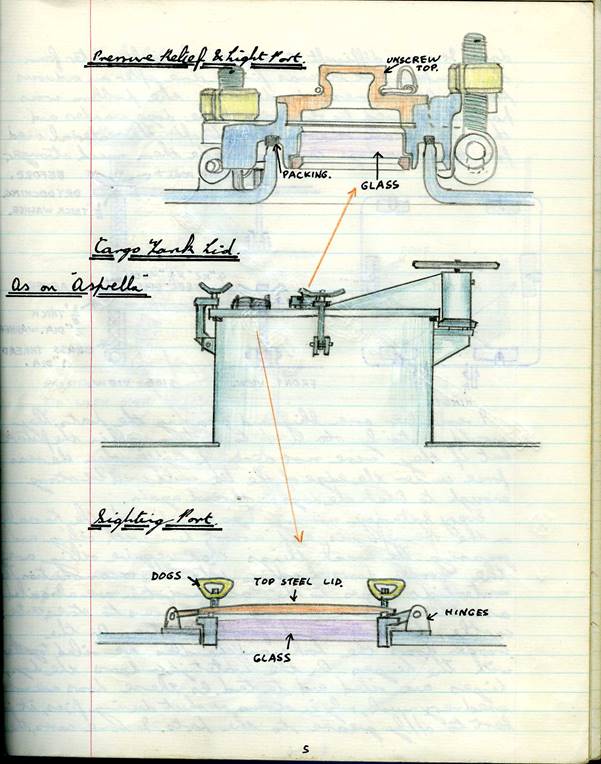 Pressure Relief & Light Port.
UNSCREW
TOP.
PACKING.
GLASS
Cargo Tank Lid.
As on "Asprella"
Sighting Port.
DOGS
TOP STEEL LID.
HINGES
GLASS
5